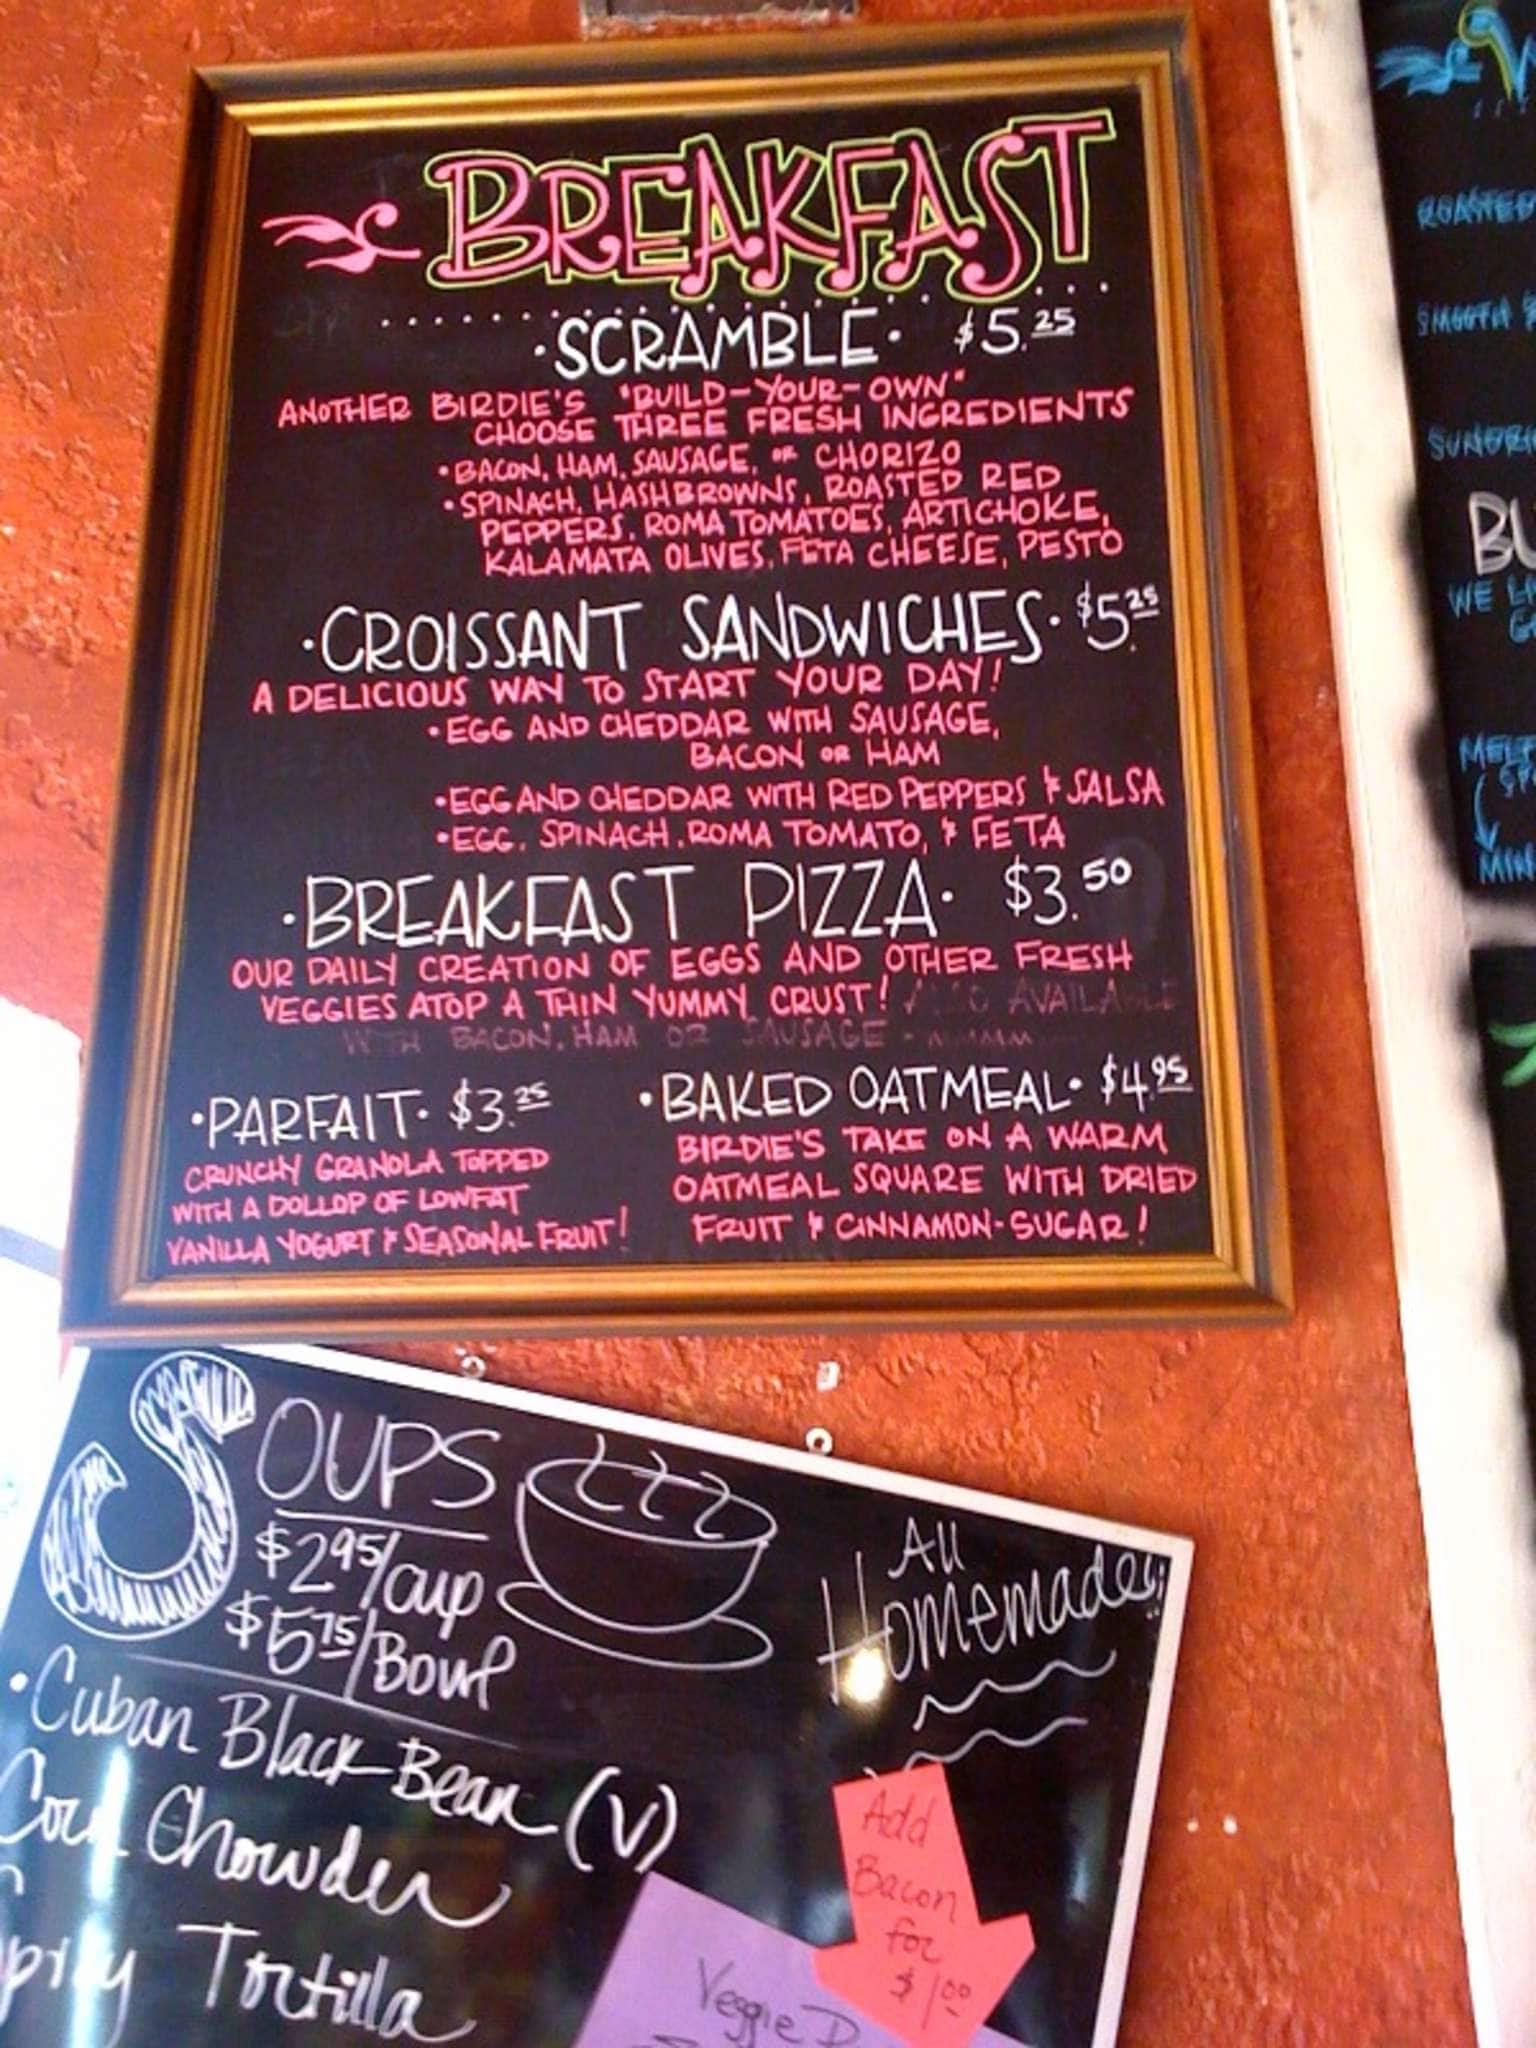 BREAKFAST
·SCRAMBLE· $5.25
ANOTHER BIRDIE'S "BUILD-YOUR-OWN"
CHOOSE THREE FRESH INGREDIENTS
·BACON, HAM, SAUSAGE, OR CHORIZO
·SPINACH, HASHBROWNS, ROASTED RED
PEPPERS, ROMA TOMATOES, ARTICHOKE,
KALAMATA OLIVES, FETA CHEESE, PESTO
·CROISSANT SANDWICHES· $5.25
A DELICIOUS WAY TO START YOUR DAY!
·EGG AND CHEDDAR WITH SAUSAGE,
BACON OR HAM
·EGG AND CHEDDAR WITH RED PEPPERS & SALSA
·EGG, SPINACH, ROMA TOMATO, & FETA
·BREAKFAST PIZZA· $3.50
OUR DAILY CREATION OF EGGS AND OTHER FRESH
VEGGIES ATOP A THIN YUMMY CRUST! ALSO AVAILABLE
WITH BACON, HAM OR SAUSAGE - MMMM
·PARFAIT· $3.25
CRUNCHY GRANOLA TOPPED
WITH A DOLLOP OF LOWFAT
VANILLA YOGURT & SEASONAL FRUIT!
·BAKED OATMEAL· $4.95
BIRDIE'S TAKE ON A WARM
OATMEAL SQUARE WITH DRIED
FRUIT & CINNAMON-SUGAR!
SOUPS
$2.95/cup
$5.75/Bowl
All
Homemade!
·Cuban Black Bean (V)
Corn Chowder
Spicy Tortilla
Add
Bacon
for
$1.00
Veggie D
ROASTED
SMOOTH
BU
WE
MIN